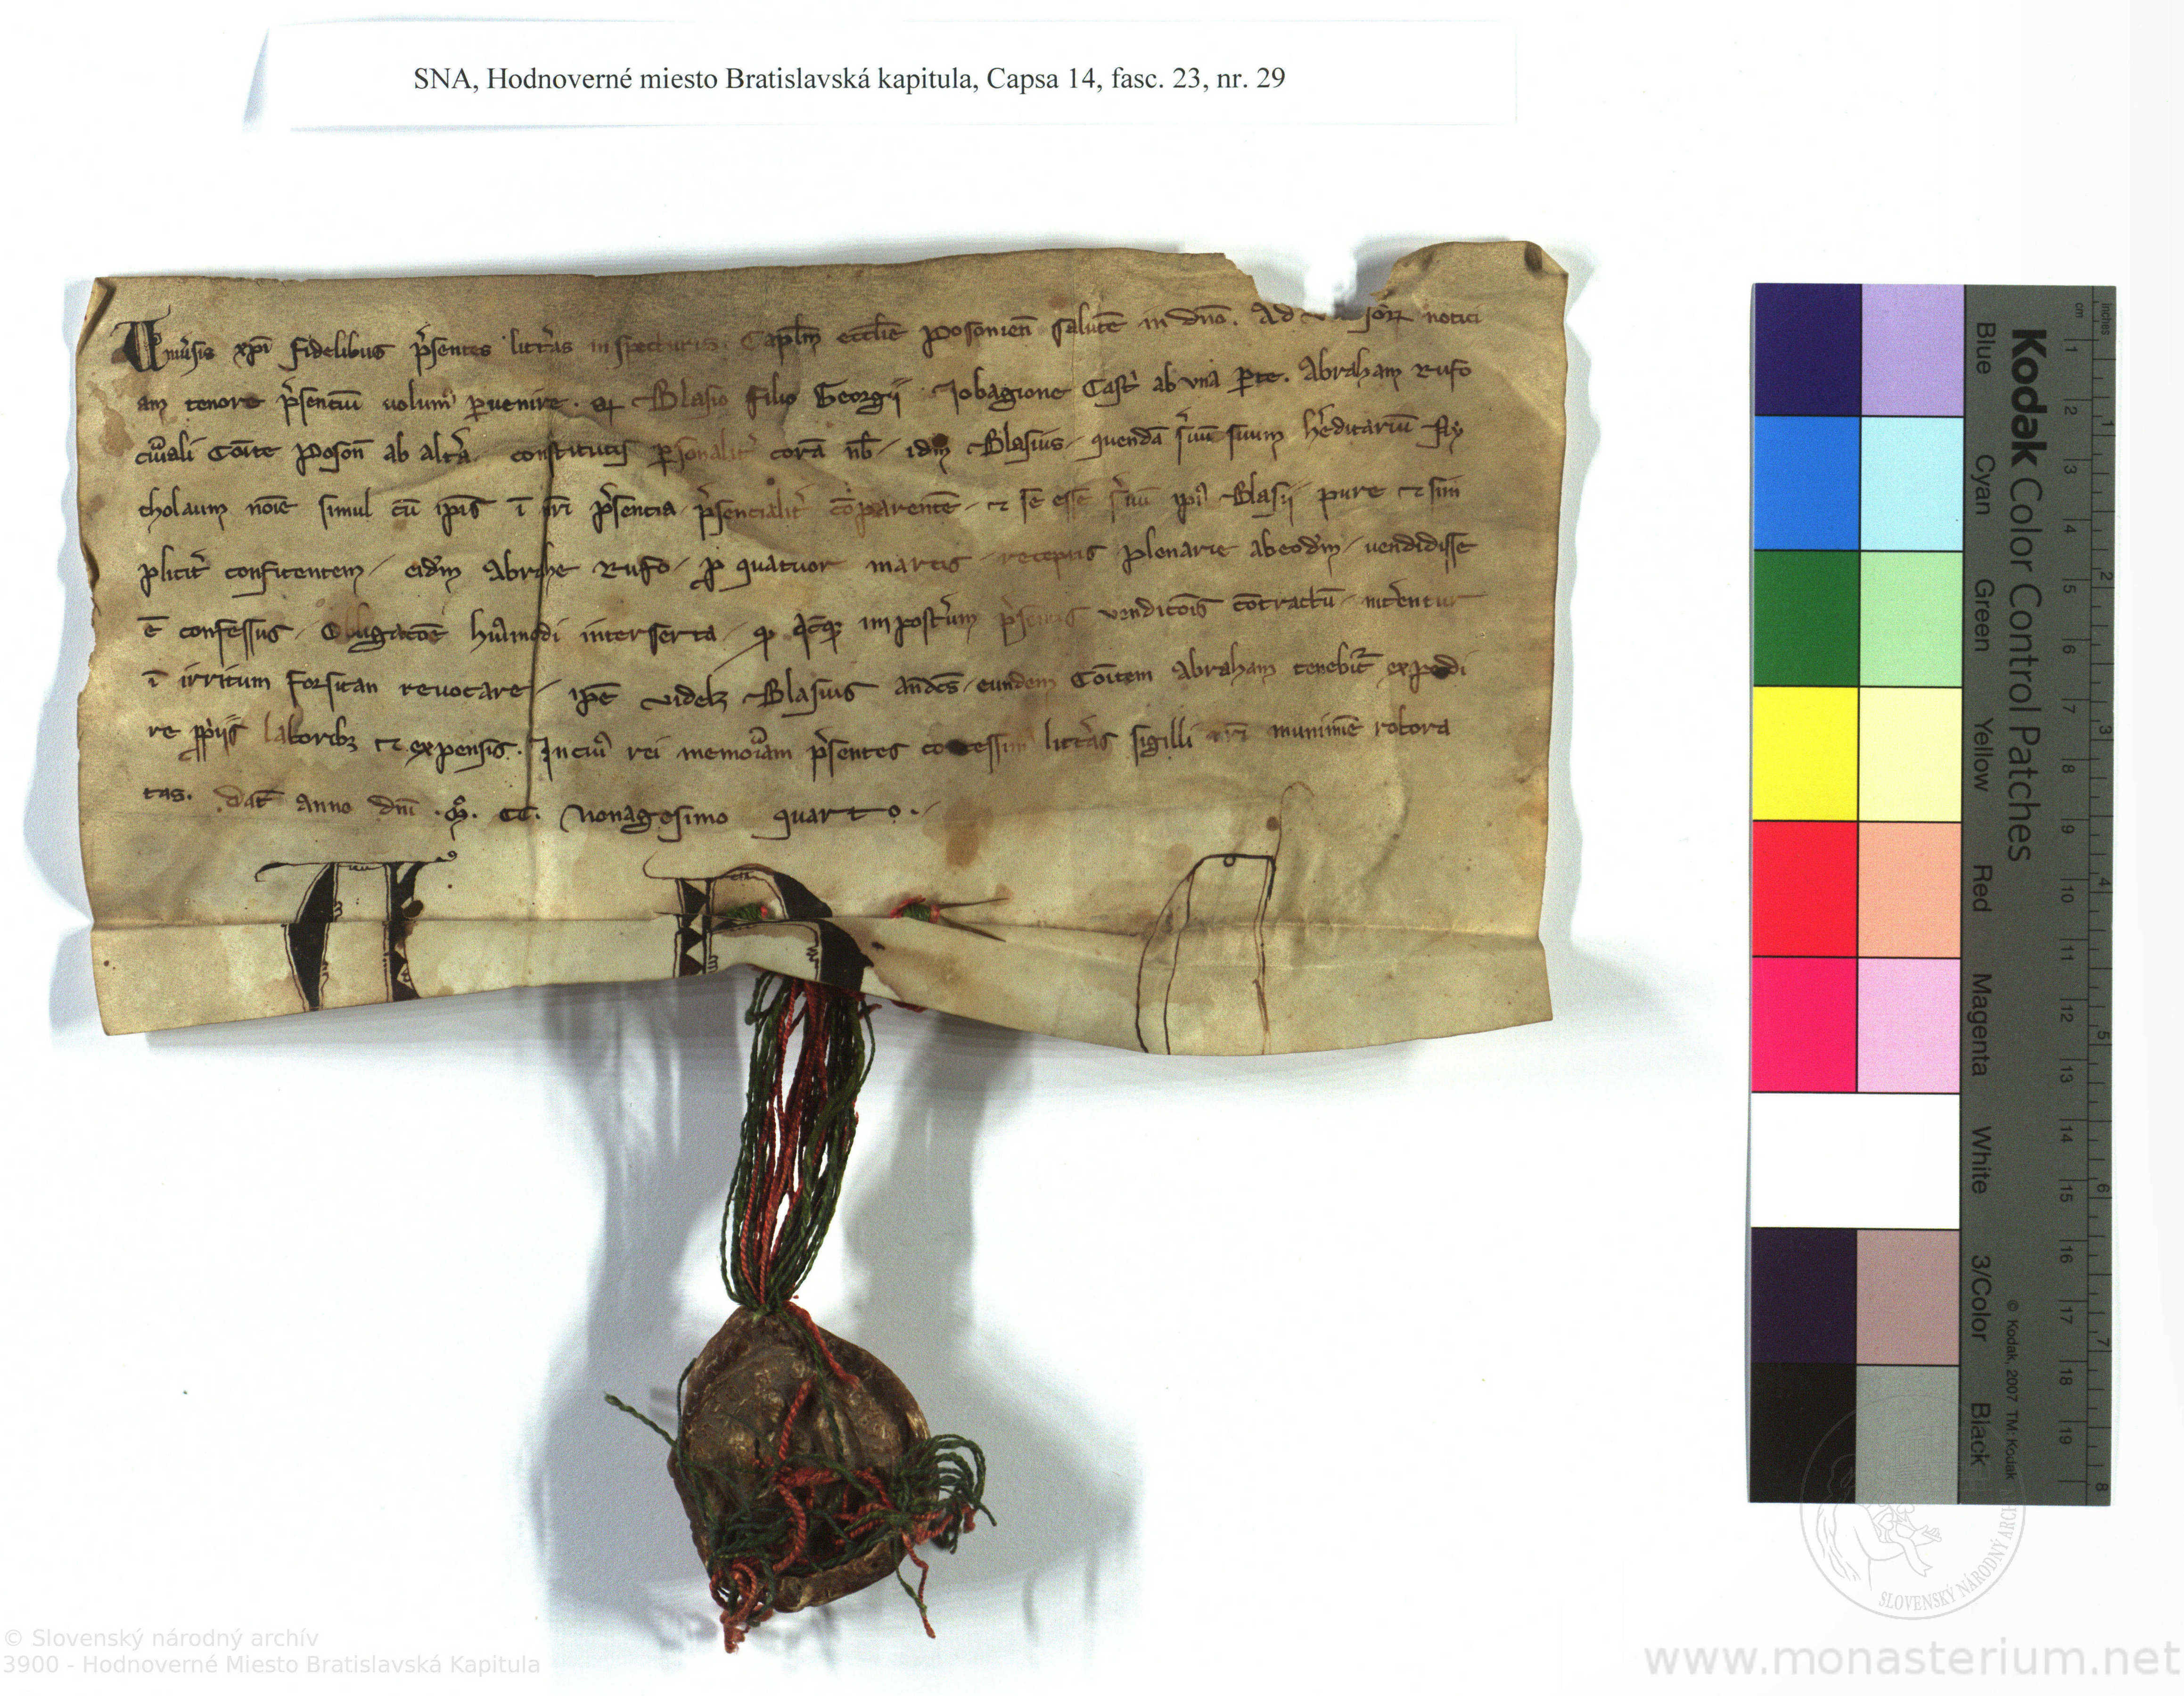 SNA, Hodnoverné miesto Bratislavská kapitula, Capsa 14, fasc. 23, nr. 29
Vniuˀsis xp̄i fidelibus p̄sentes litt̄as inspecturis Capl̄m eccl̄ie Posonien̄ salutē in dn̄o. Ad notici
am tenore p̄sentiū uolumˀ ꝑuenire. ꝙ Blasio filio Georgij Jobagione Castˀ ab vna ꝑte. Abraham Rufo
Cōite Poson̄ ab alt̄a constitutis ꝑsonalit̄ corā nob̄ idm̄ Blasius quendā suum h̄editariū Ny
cholaum nōie simul cū ip̄is ī nr̄i p̄sentia p̄sentialit̄ cōparentē ⁊ se esse ip̄iˀ Blasij pure ⁊ sim
plicit̄ confitentem eidm̄ Abrahe Rufo ꝓ quatuor marcis receptis plenarie ab eodm̄ uendidisse
ē confessus Obligatōe huˀmodi interserta ꝙ impost̄um vendicōis cōtractū
ī irritum forsitan reuocare ip̄e videlꝫ Blasius eundem Cōitem Abraham tenebit̄ expedi
re ꝓprijs laboribꝫ ⁊ expensis. In cuiˀ rei memoriam p̄sentes concessimˀ litt̄as sigilli nr̄i munimīe robora
tas. Dat̄ anno dn̄i .M̊. CC. Nonagesimo quarto.
Kodak Color Control Patches
Blue Cyan Green Yellow Red Magenta White 3/Color Black
© Kodak, 2007 TM: Kodak
inches 1 2 3 4 5 6 7 8
cm 1 2 3 4 5 6 7 8 9 10 11 12 13 14 15 16 17 18 19
SLOVENSKÝ NÁRODNÝ ARCH
© Slovenský národný archív
3900 - Hodnoverné Miesto Bratislavská Kapitula
www.monasterium.net